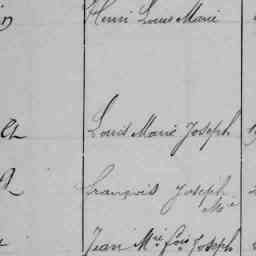 Henri Louis Marie
Louis Marie Joseph
François Joseph
Mie
Jean Mie Fois Joseph